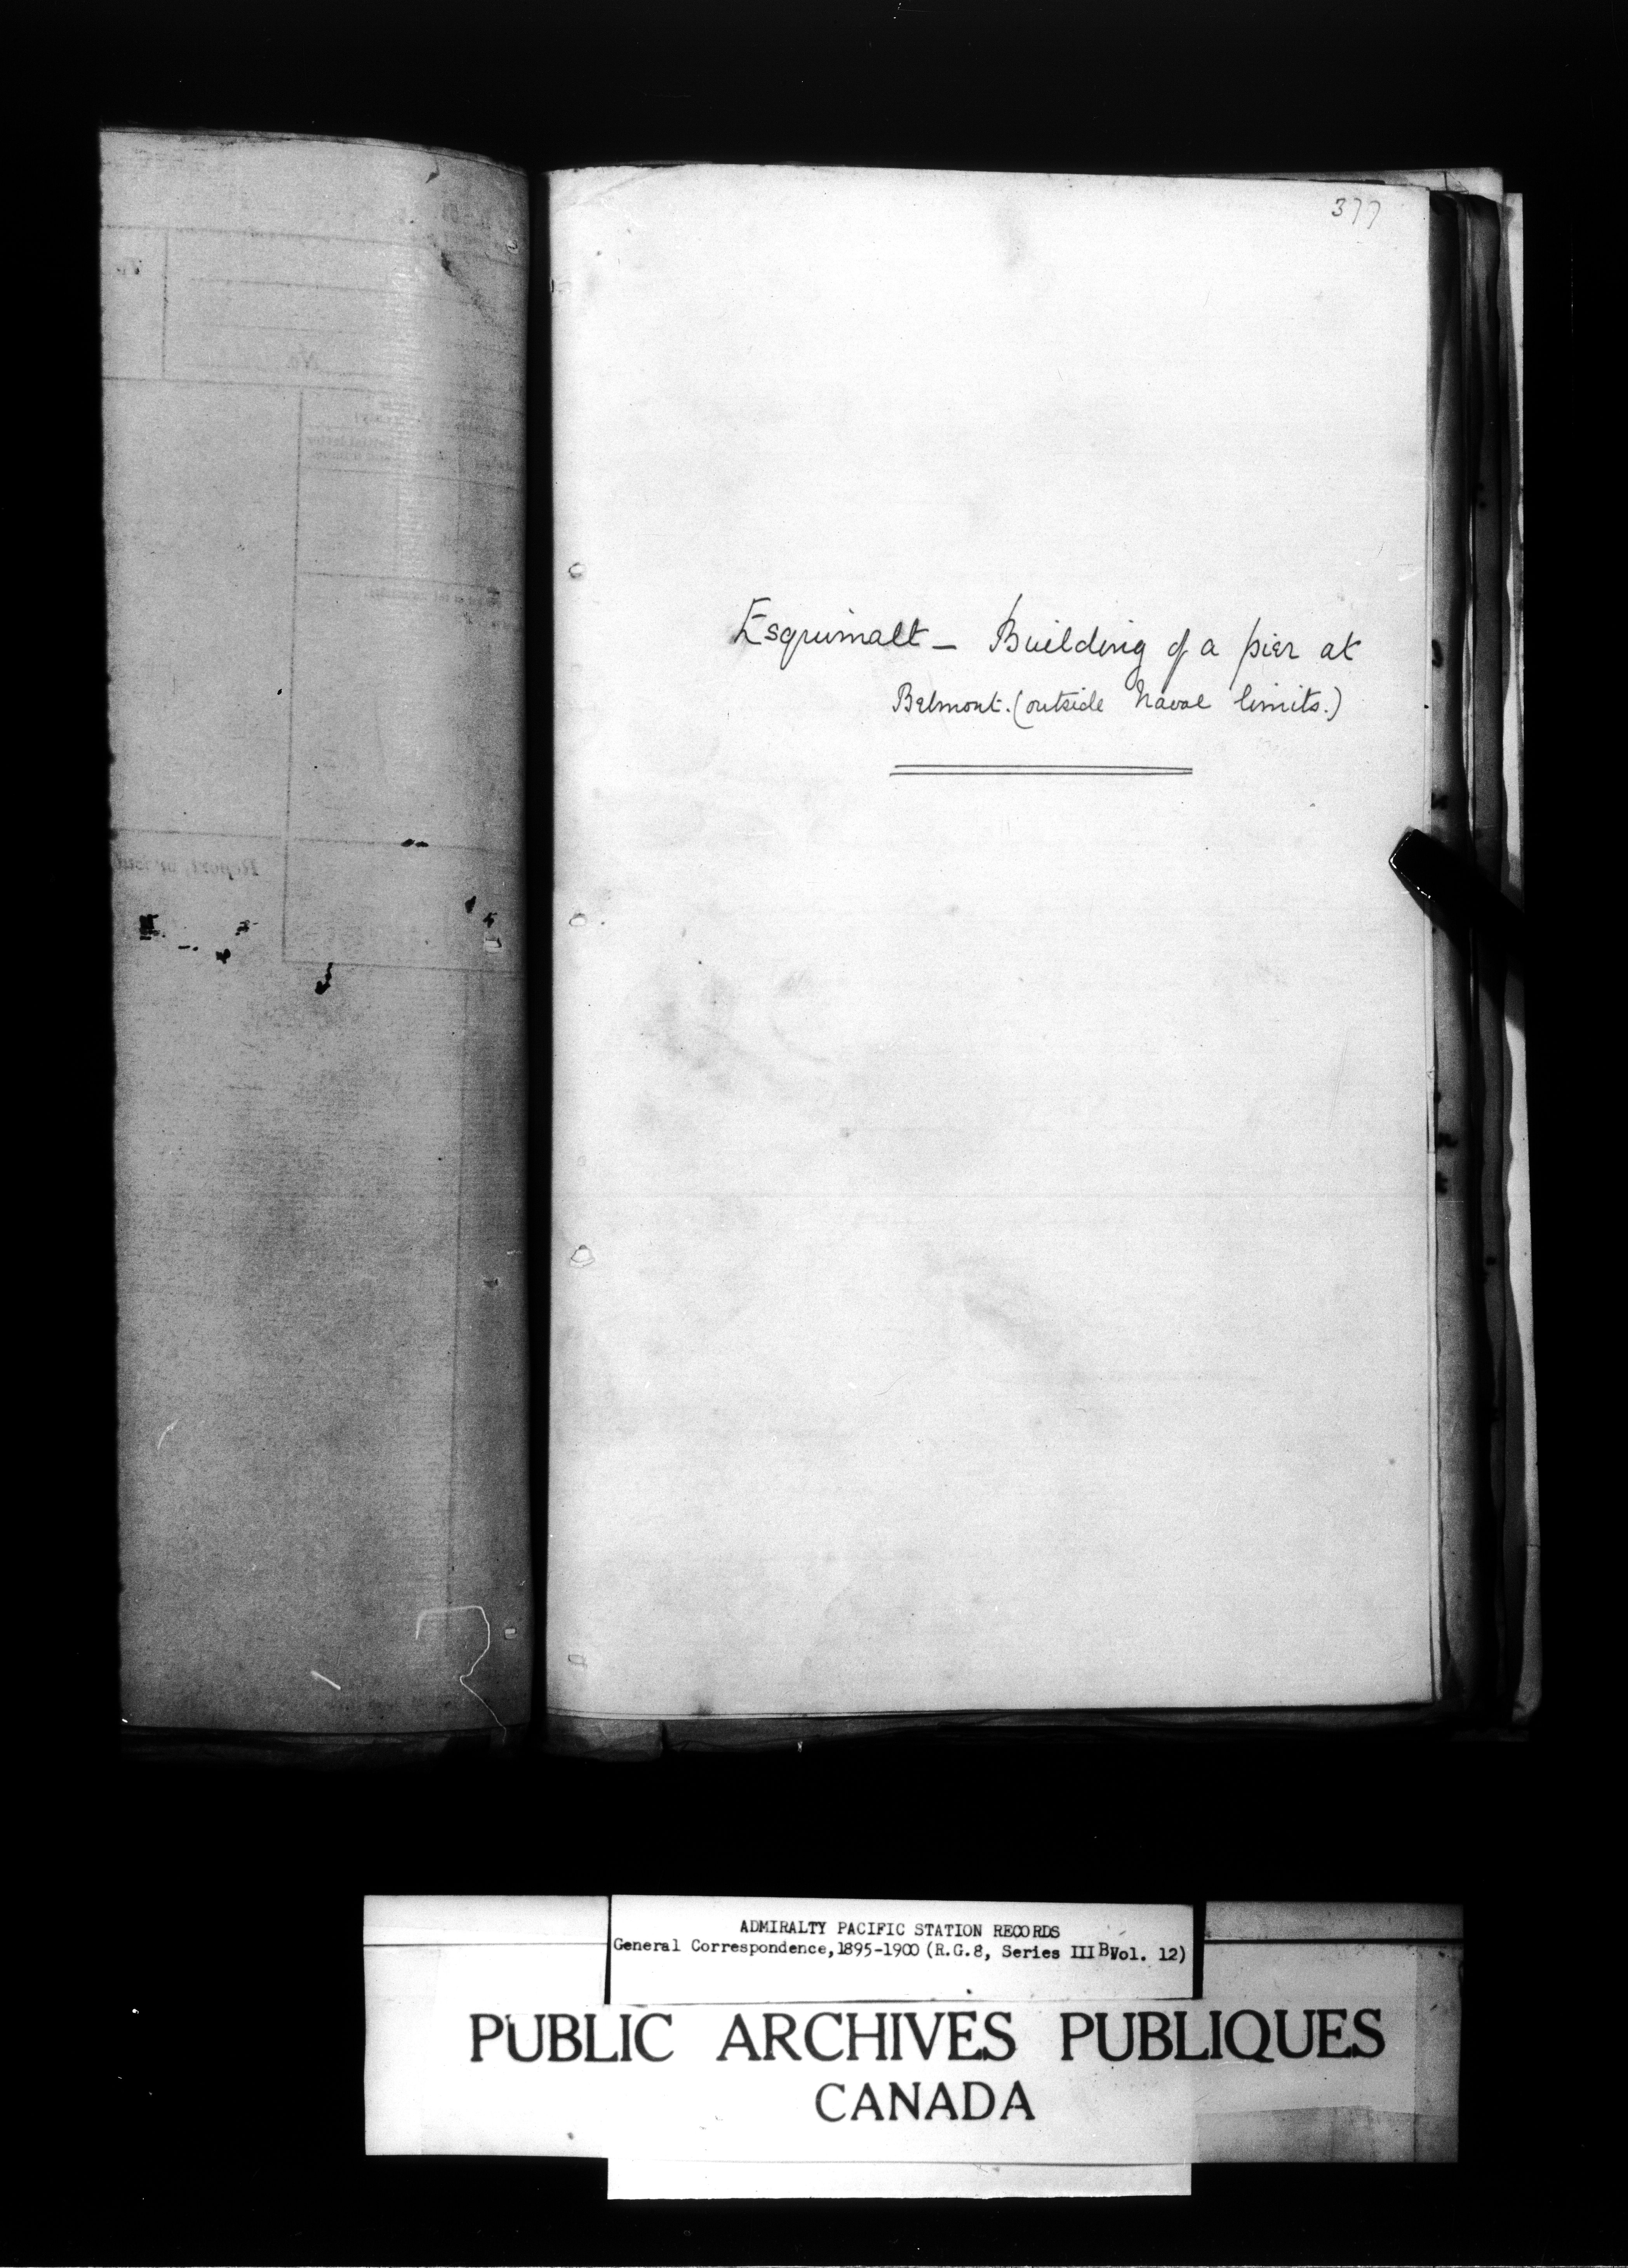 377
Esquimalt – Building of a pier at
Belmont. (outside Naval limits.)
No.
ADMIRALTY PACIFIC STATION RECORDS
General Correspondence, 1895-1900 (R.G.8, Series III B, Vol. 12)
PUBLIC ARCHIVES PUBLIQUES
CANADA